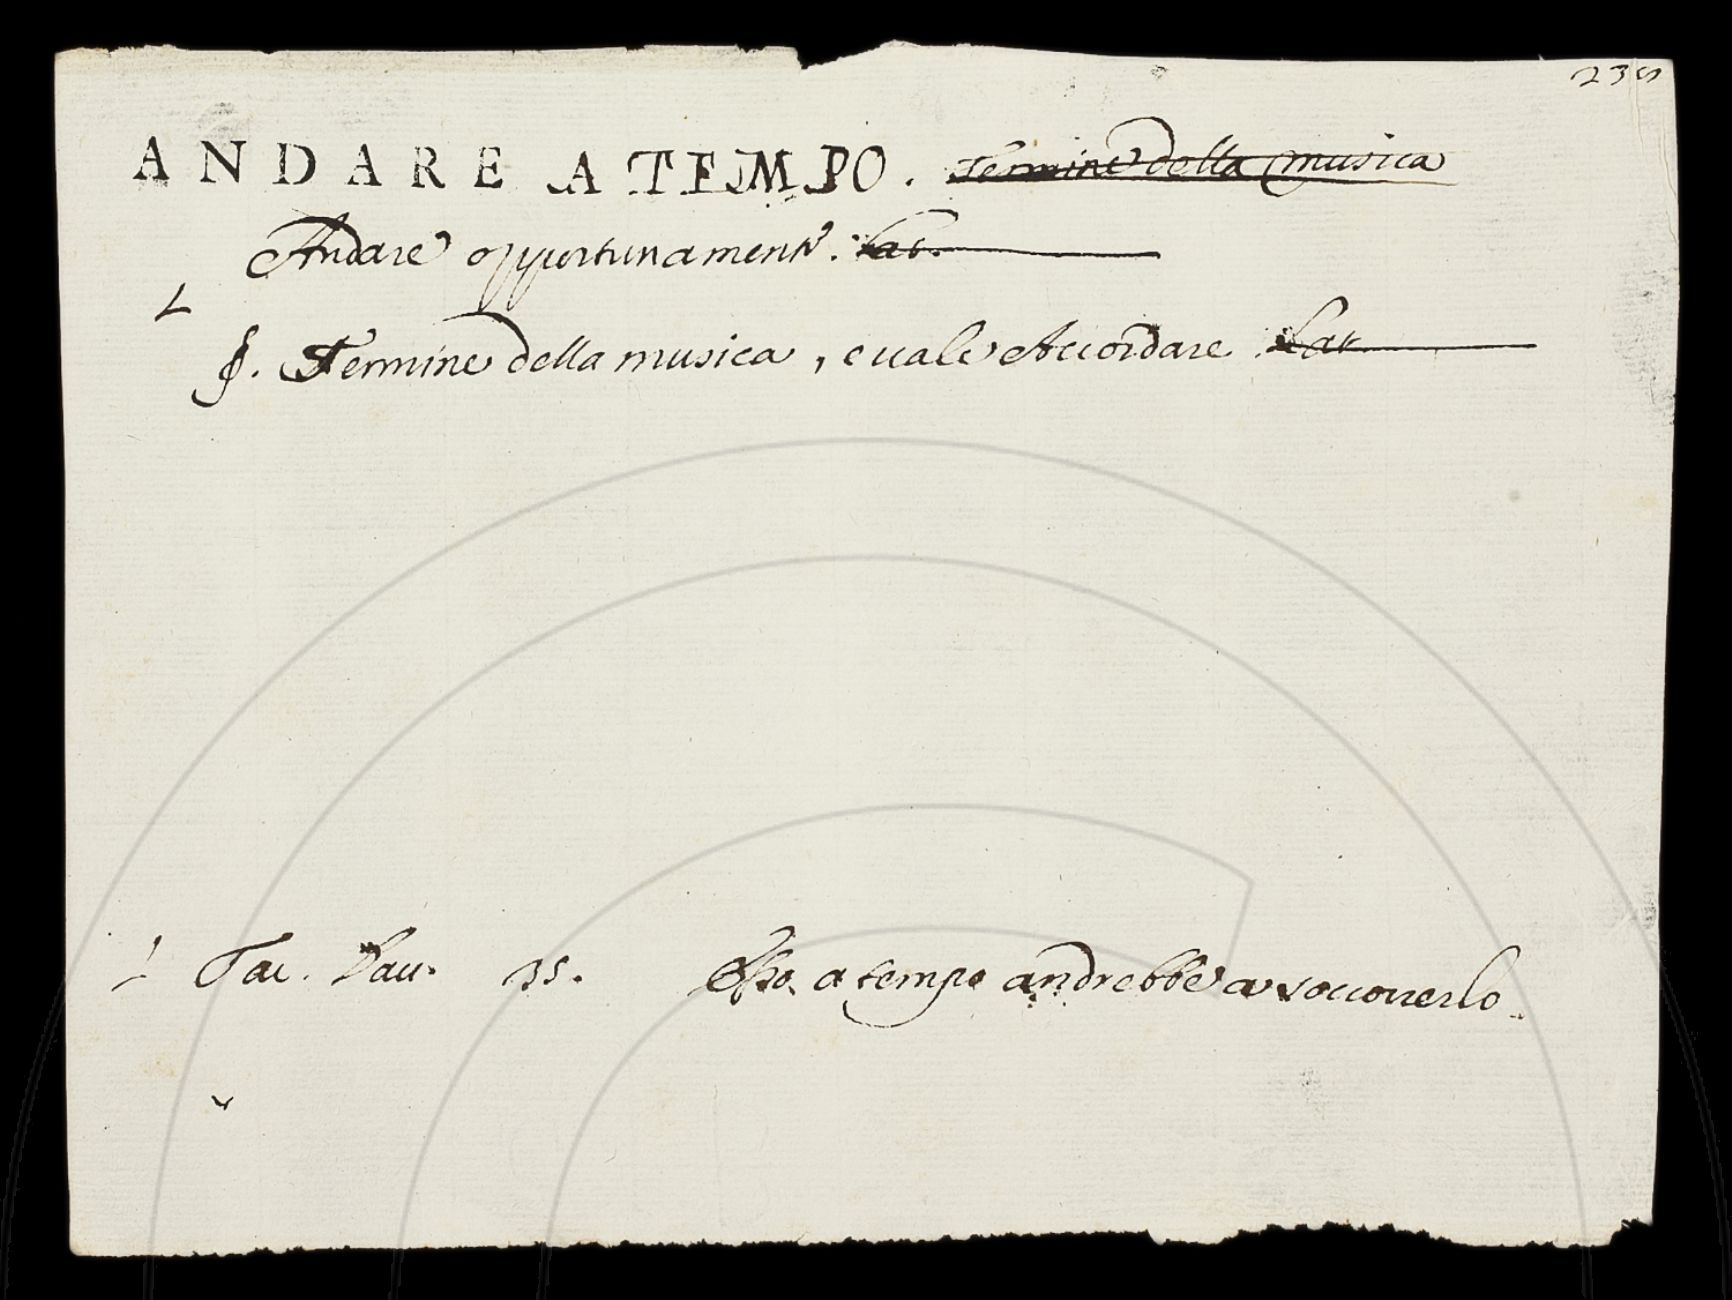 235
ANDARE A TEMPO. Termine della musica
Andare opportunamente. Lat.
L
§. Termine della musica, e vale Accordare. Lat.
L Tac. Dav. 35. Esso a tempo andrebbe a soccorrerlo.